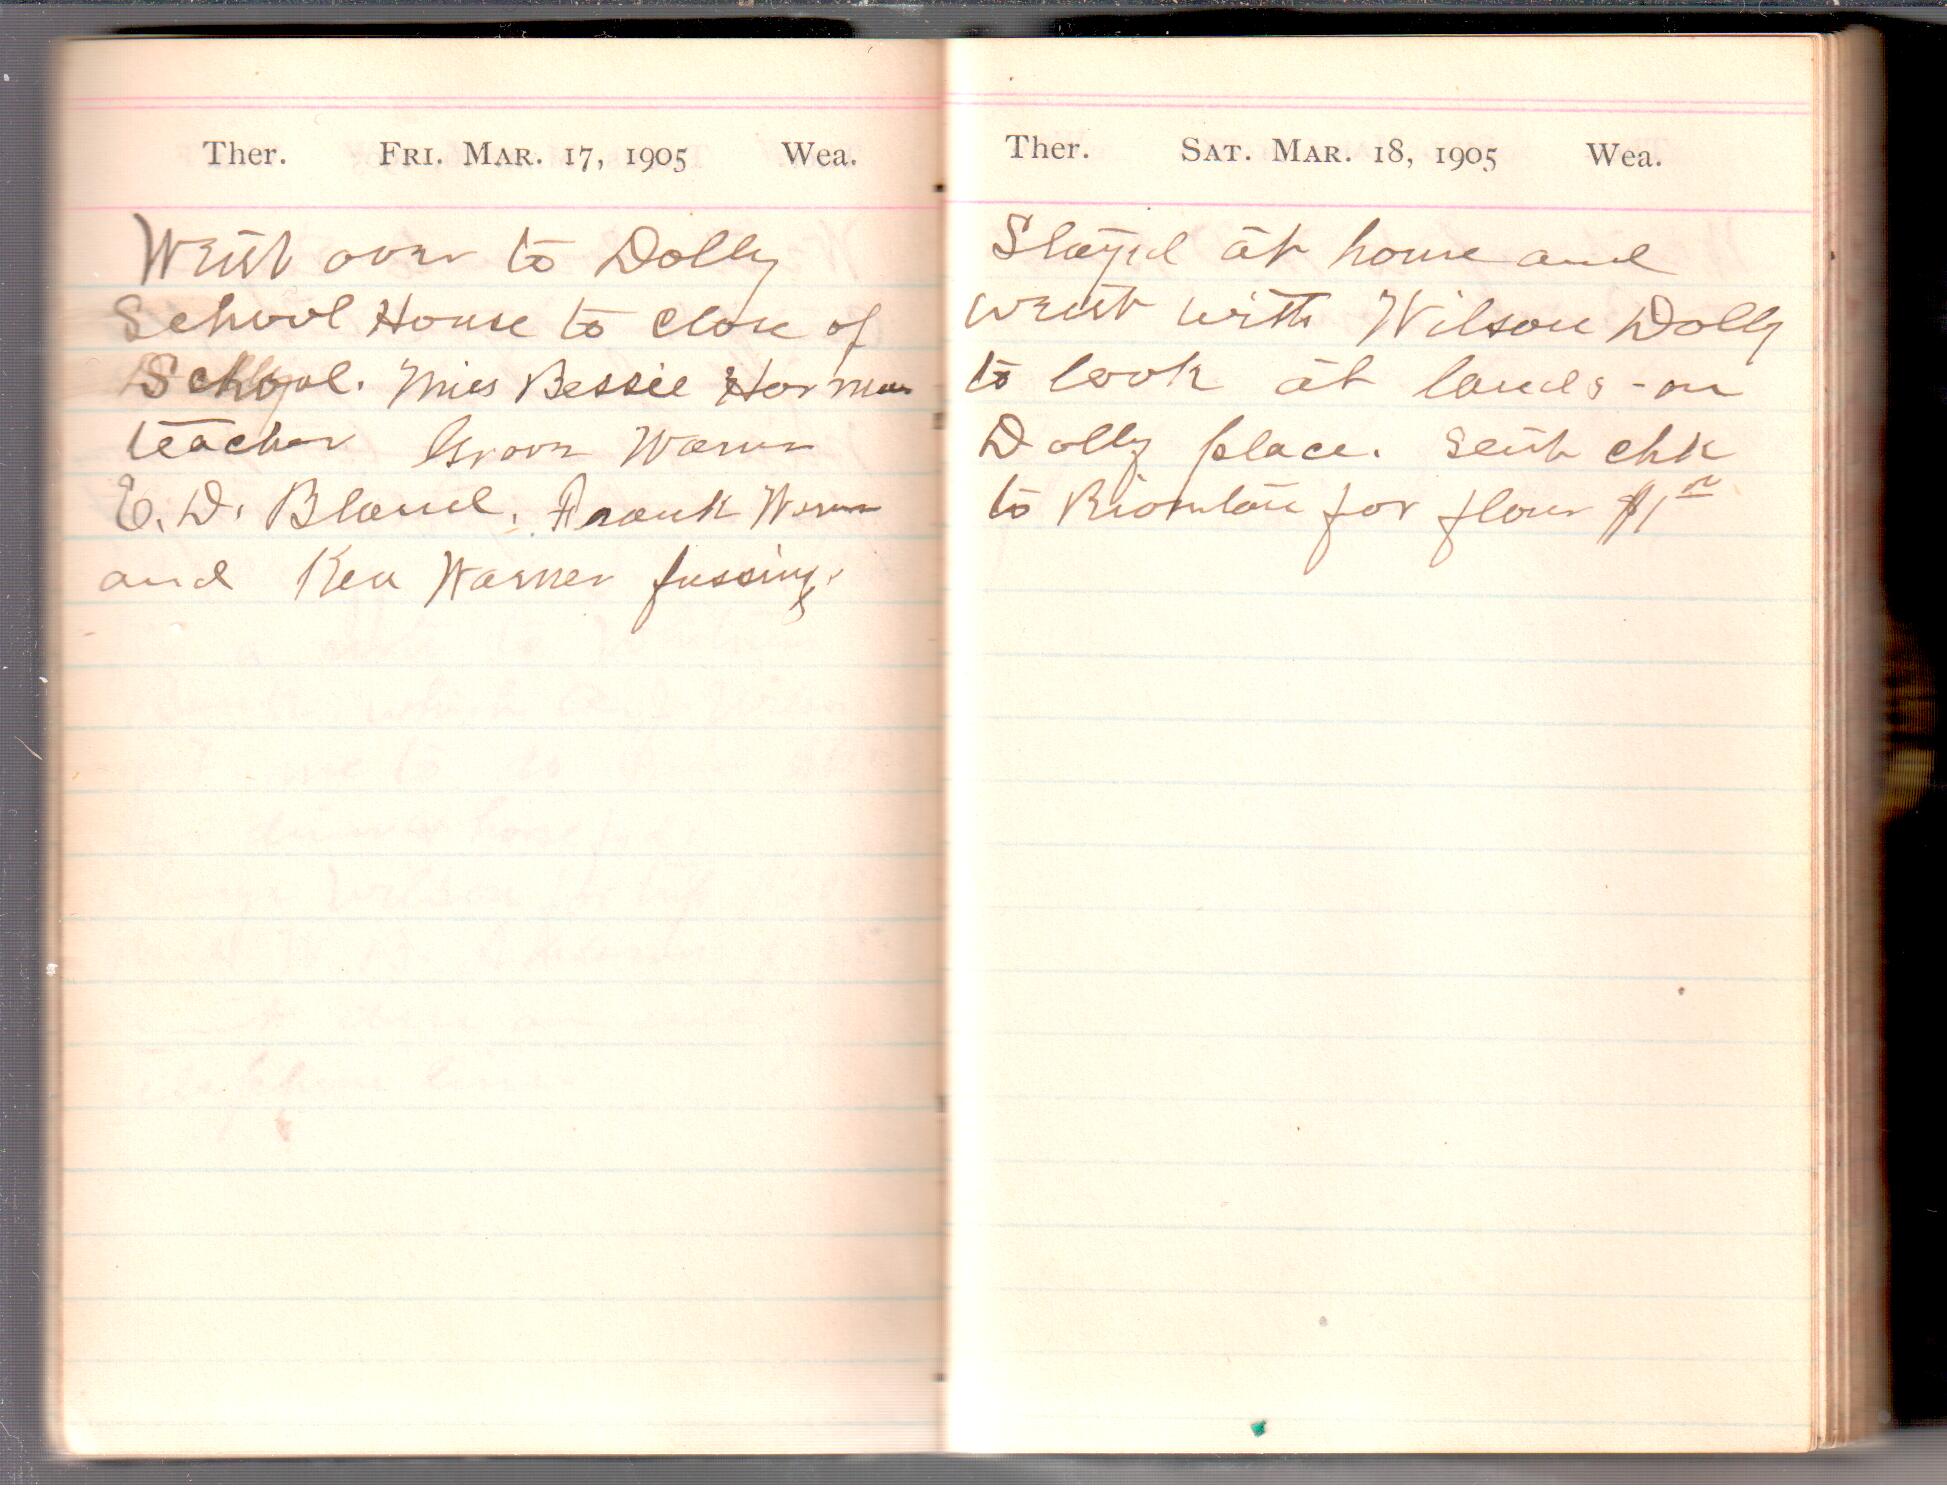 Ther. Fri. Mar. 17, 1905 Wea.
Went over to Dolly
School House to close of
School. Miss Bessie Harman
teacher Grover Warner
E. D. Bland, Frank Warner
and Ken Warner fussing.
Ther. Sat. Mar. 18, 1905 Wea.
Stayed at home and
went with Wilson Dolly
to look at lands - on
Dolly place. Sent chk
to for flour $1